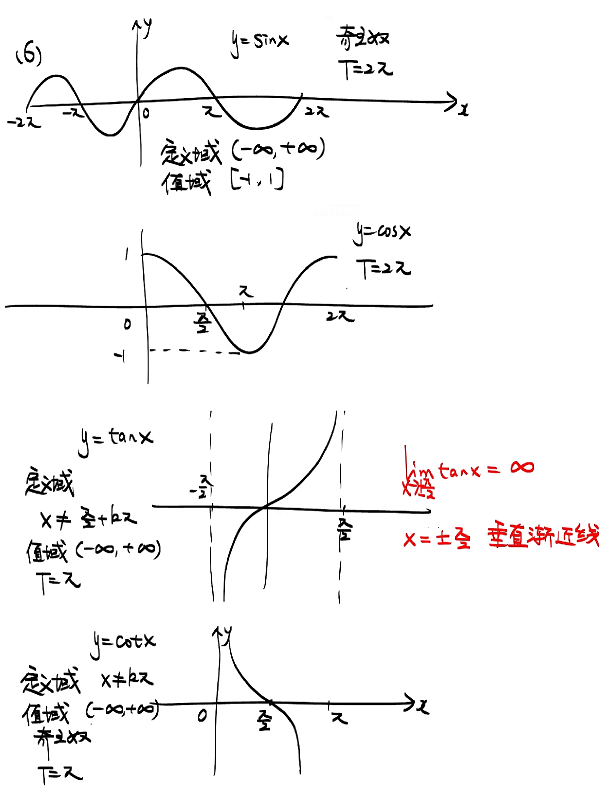 (6)
y
y=sinx 奇函数
T=2π
-2π -π 0 π 2π x
定义域 (-∞,+∞)
值域 [-1,1]
y=cosx
T=2π
1
π
0 π/2 2π
-1
y=tanx
定义域
x≠π/2+kπ
值域 (-∞,+∞)
T=π
-π/2
π/2
lim tanx=∞
x→±π/2
x=±π/2 垂直渐近线
y=cotx
定义域 x≠kπ
值域 (-∞,+∞)
奇函数
T=π
y
0 π/2 π x